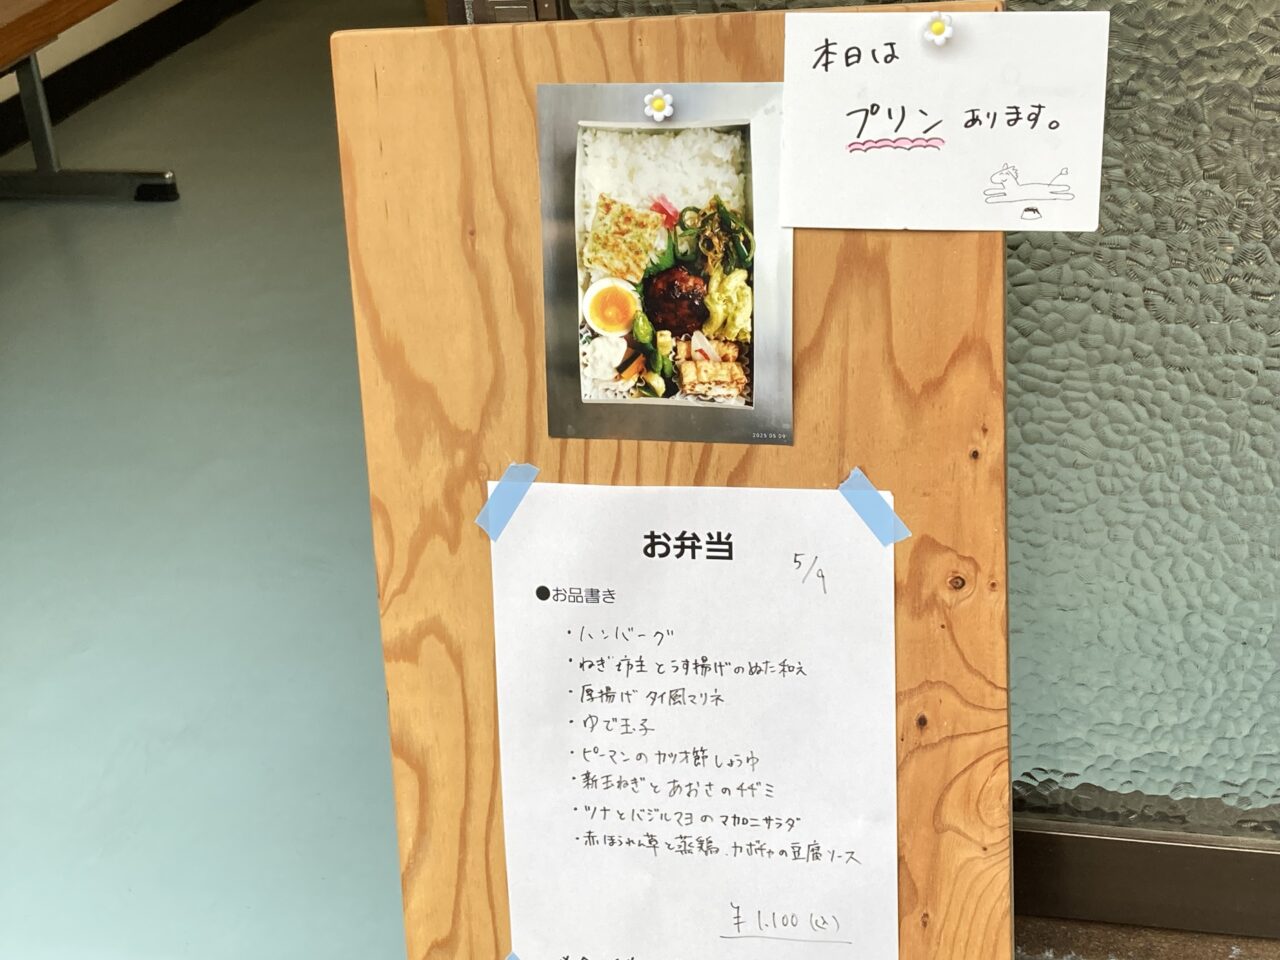 本日は
プリン あります。
2025 05 09
お弁当
5/9
●お品書き
・ハンバーグ
・ねぎ坊主とうす揚げのぬた和え
・厚揚げ タイ風マリネ
・ゆで玉子
・ピーマンのカツオ節しょうゆ
・新玉ねぎとあおさのチヂミ
・ツナとバジルマヨのマカロニサラダ
・赤ほうれん草と蒸鶏、カボチャの豆腐ソース
¥1,100(込)